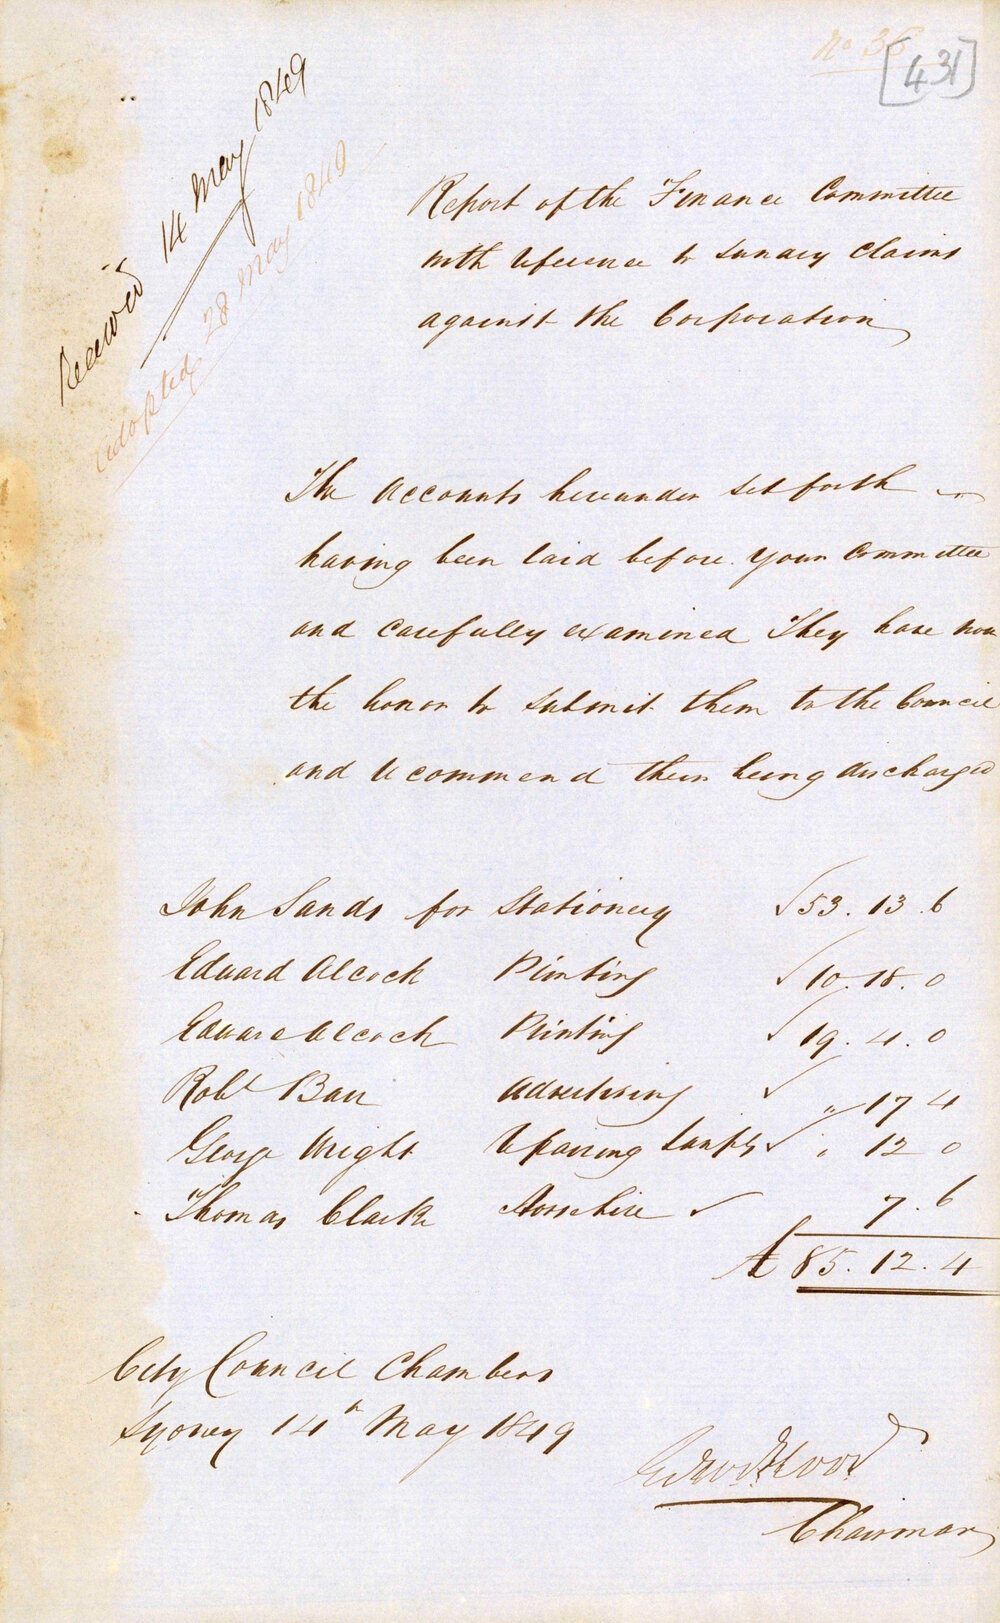 No 36
[431]
Received 14 May 1849
Adopted 28 May 1849
Report of the Finance Committee
with reference to sundry claims
against the Corporation
The Accounts hereunder set forth
having been laid before your Committee
and carefully examined They have now
the honor to submit them to the Council
and recommend their being discharged
John Sands for Stationery 53.13.6
Edward Alcock Printing 10.18.0
Edward Alcock Printing 19.4.0
Robt Barr Advertising " 17 4
George Wright repairing Lamps " 12 0
Thomas Clarke Horsehire 7.6
£ 85.12.4
City Council Chambers
Sydney 14th May 1849
Edwd Flood
Chairman